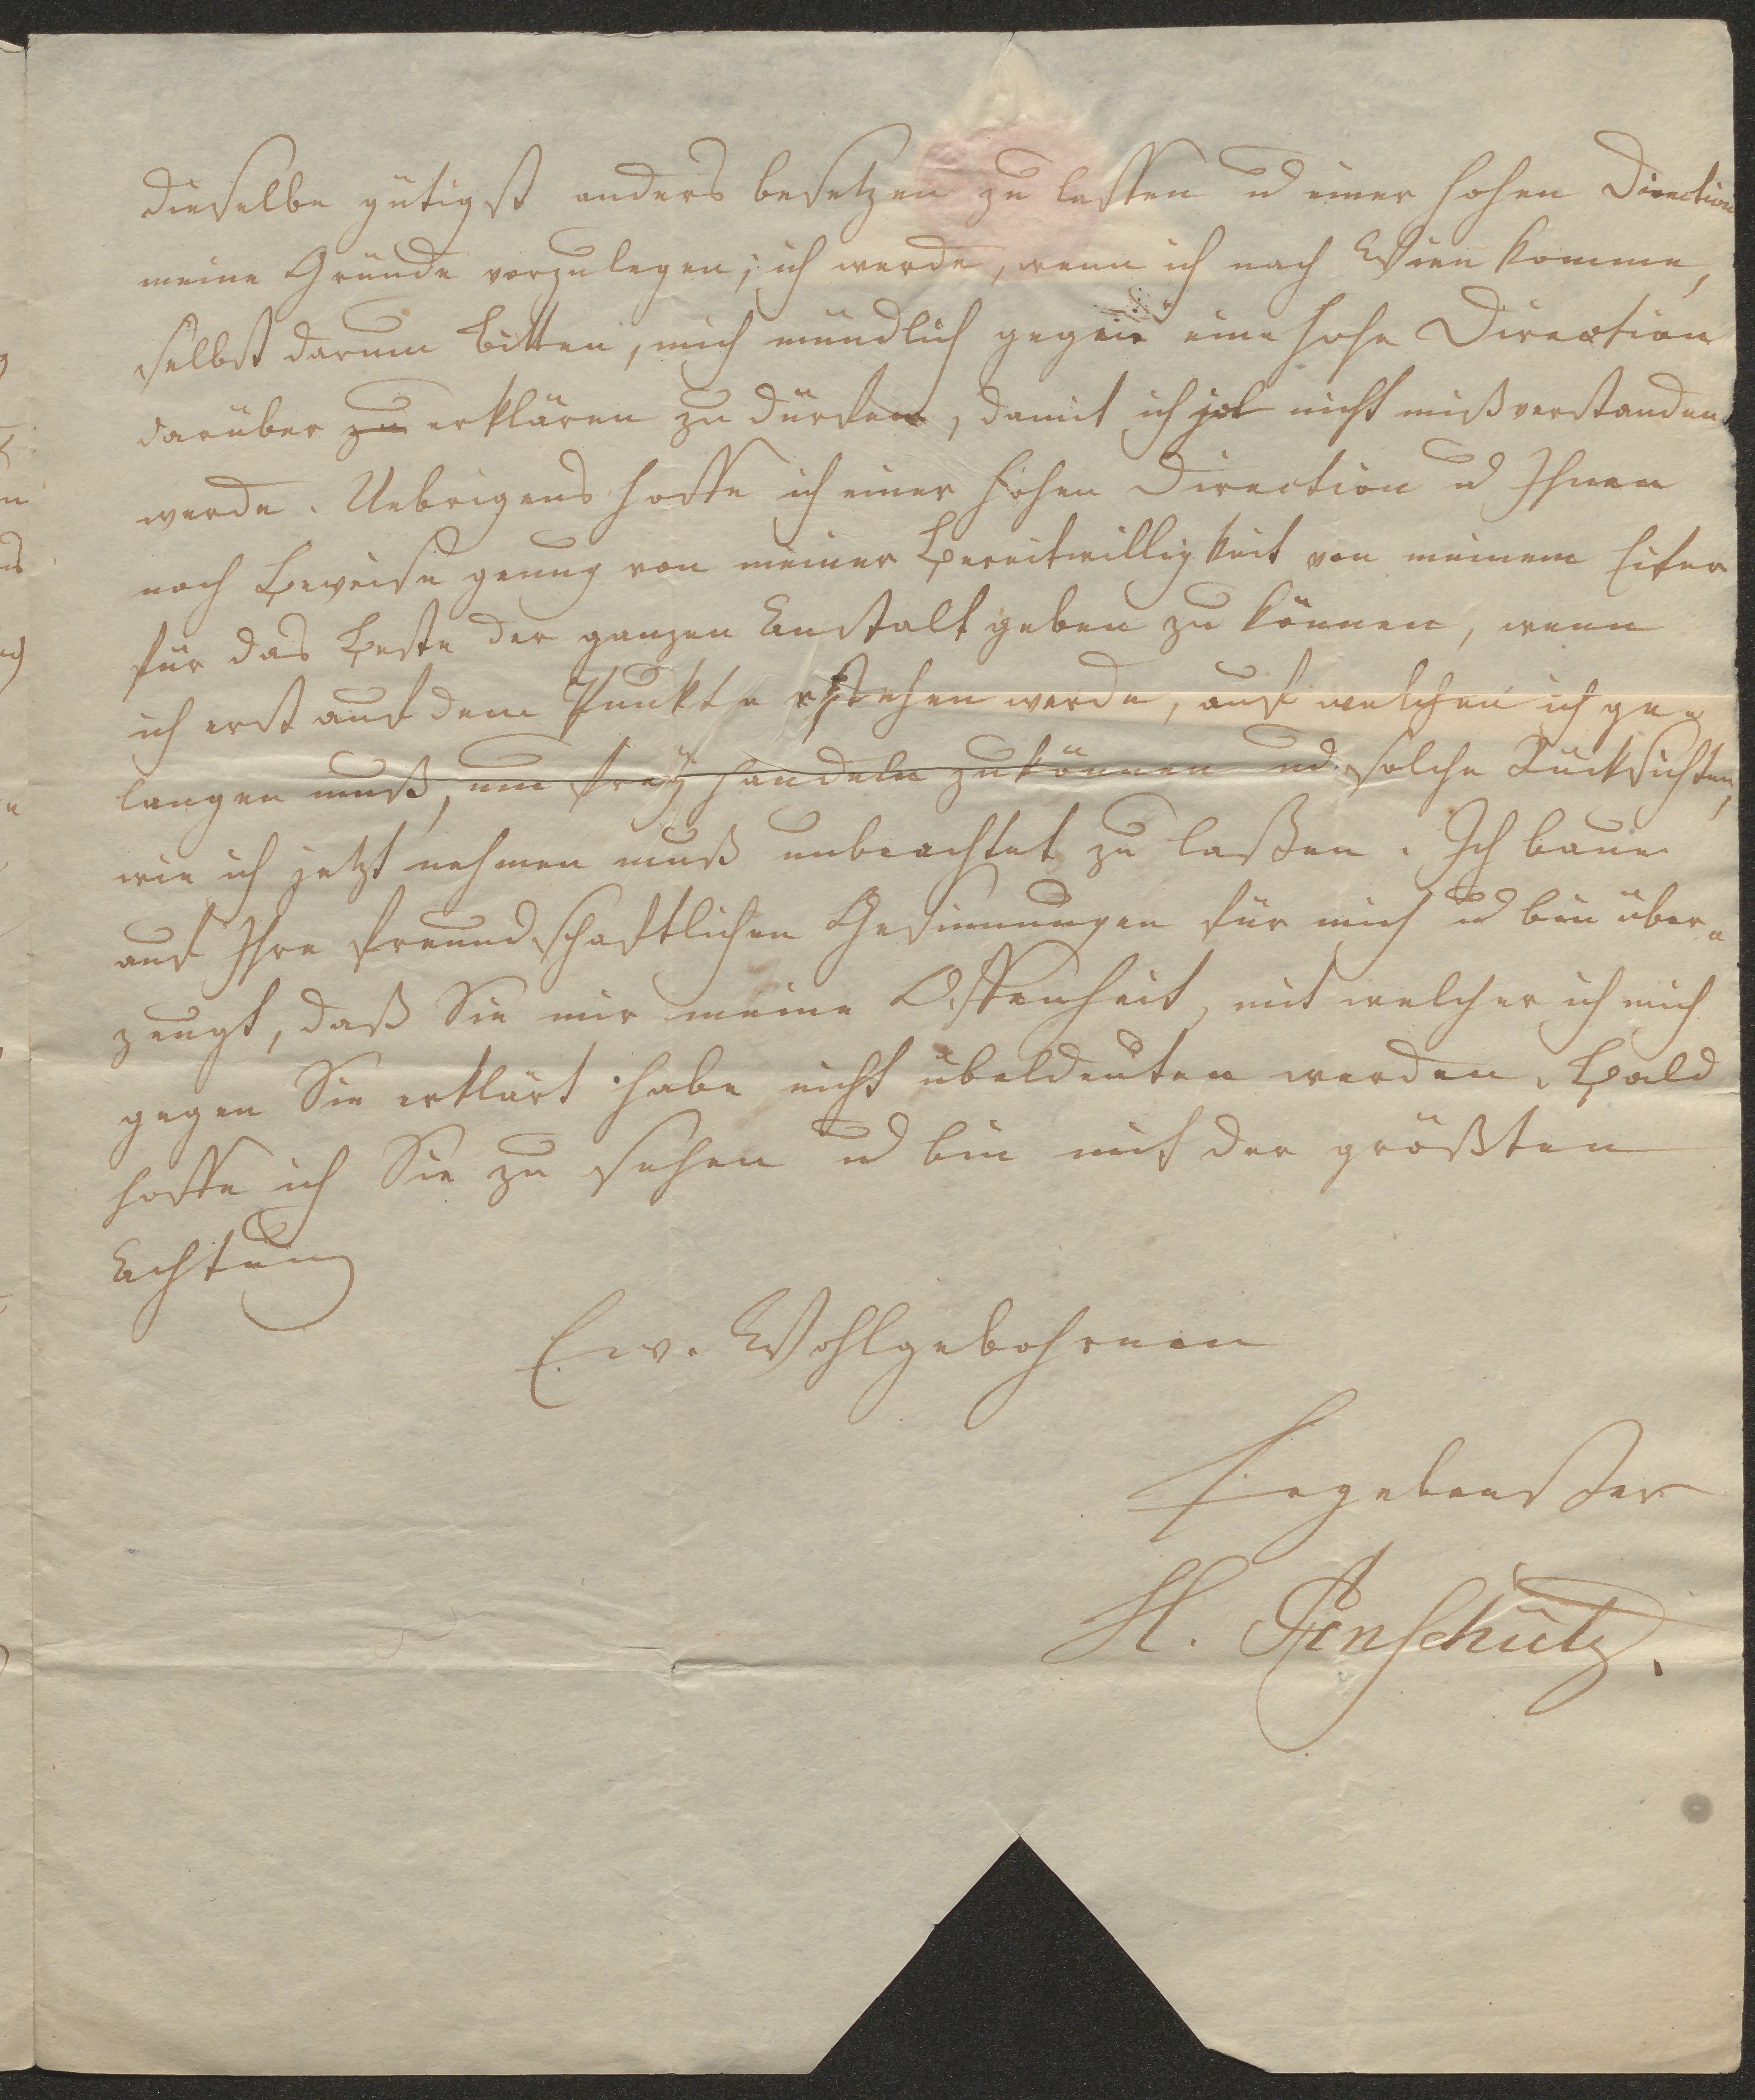 dieselbe gütigst anders besetzen zu lassen u einer hohen Direction
meine Gründe vorzulegen; ich werde, wenn ich nach Wien komme,
selbst darum bitten, mich mündlich gegen eine hohe Direction
darüber zu erklären zu dürfen, damit ich ja nicht mißverstanden
werde. Uebrigens hoffe ich einer hohen Direction u Ihnen
noch Beweise genug von meiner Bereitwilligkeit von meinem Eifer
für das Beste der ganzen Anstalt geben zu können, wenn
ich erst auf dem Punkte stehen werde, auf welchen ich ge-
langen muß, um frey handeln zu können und solche Rücksichten,
wie ich jetzt nehmen muß unbeachtet zu laßen. Ich baue
auf Ihre freundschaftlichen Gesinnungen für mich u bin über-
zeugt, daß Sie mir meine Offenheit, mit welcher ich mich
gegen Sie erklärt habe nicht übeldeuten werden. Bald
hoffe ich Sie zu sehen u bin mit der größten
Achtung
Ew. Wohlgebohrnen
Ergebenster
H. Anschütz.